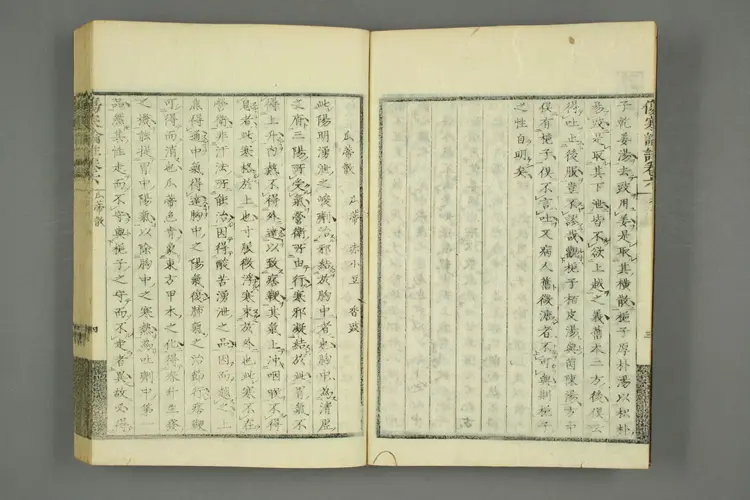 子乾姜湯去致用姜是取其橫散梔子厚朴湯以枳朴
易豉是取其下泄皆不欲上越之義舊本二方後俱云
得吐止後服豈不謬哉觀梔子栢皮湯與茵陳湯方中
俱有梔子俱不言吐又病人舊微溏者不可與則梔子
之性自明矣
傷寒論註卷六
三
瓜蒂散
瓜蒂 赤小豆 香豉
此陽明湧泄之峻劑治邪結於胸中者也胸中為清虛
之府三陽所受氣營衛所由行寒邪凝結於此胃氣不
得上升內熱不得外達以致痞鞕其氣上冲咽喉不得
息者此寒格於上也寸脉微浮寒束於外也此寒不在
營衛非汗法所能治因得酸苦湧泄之品因而越之上
焦得通中氣得達胸中之陽氣復肺氣之治節行痞鞕
可得而消也瓜蒂色青象東方甲木之化得春升生發
之機能提胃中陽氣以除胸中之寒熱為吐劑中第一
品然其性走而不守與梔子之守而不走者異故必得
瓜蒂散
四